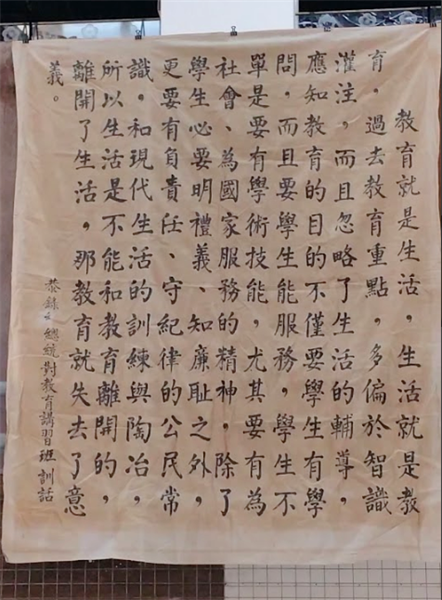 教育就是生活,生活就是教
育。過去教育重點,多偏於智識
灌注,而且忽略了生活的輔導,
應知教育的目的不僅要學生有學
問,而且要學生能服務,學生不
單是要有學術技能,尤其要有為
社會、為國家服務的精神。除了
學生心要明禮義、知廉恥之外,
更要有負責任、守紀律的公民常
識。和現代生活的訓練與陶冶,
所以生活是不能和教育離開的,
離開了生活。那教育就失去了意
義。
恭錄 總統對教育講習班訓話